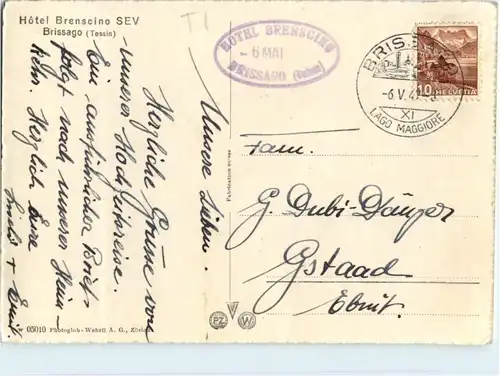 Hôtel Brenscino SEV
Brissago (Tessin)
T I
HOTEL BRENSCINO
- 6 MAI
BRISSAGO (Suisse)
BRISSAGO
-6.V.4
XI
LAGO MAGGIORE
10 HELVETIA
Unsere Lieben.
Herzliche Grüsse von
unserer Hochzeitsreise.
Ein ausführlicher Brief
folgt nach unserer Heim-
kehr. Herzlich Eure
Ernst
Fam.
G. Dubi-Dänzer
Gstaad
Ebnit.
Fabrication suisse
PZ W
05010 Photoglob-Wehrli A. G., Zürich